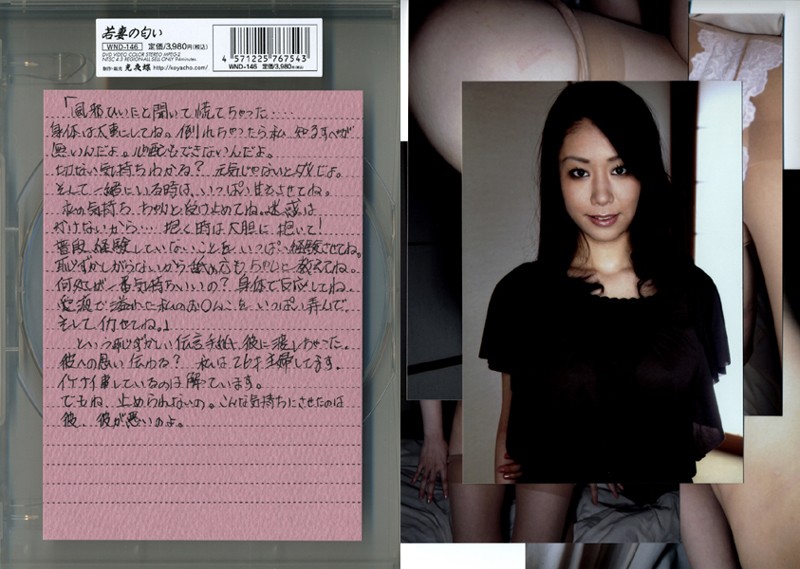 若妻の匂い
WND-146 定価/3,980円(税込)
DVD VIDEO COLOR STEREO MPEG-2
制作・販売 光夜蝶 http://koyacho.com/
4 571225 767543
WND-146 定価/3,980円(税込)
「風邪ひいたと聞いて慌てちゃった…
身体は大事にしてね。倒れちゃったら私、知るすべが
無いんだよ。心配もできないんだよ。
切ない気持ちわかる? 元気じゃないとダメだよ。
そして一緒にいる時は、いっぱい甘えさせてね。
私の気持ち、ちゃんと受けとめてね。迷惑は
かけないから… 抱く時は大胆に抱いて!
普段経験していないことを、いっぱい経験させてね。
恥ずかしがらないから舐め方もちゃんと教えてね。
何処が一番気持ちいいの? 身体で反応してね。
愛液で溢れた私のお○んこを、いっぱい弄んで、
そしてイカせてね。」
という恥ずかしい伝言手紙、彼に渡しちゃった。
彼への思い伝わる? 私は26才主婦してます。
イケナイ事しているのは解っています。
でもね、止められないの。こんな気持ちにさせたのは
彼、彼が悪いのよ。